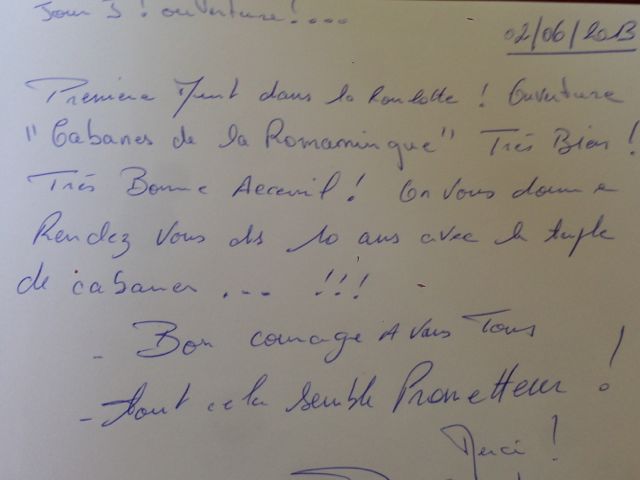 Jour J ! ouverture !....
02/06/2013
Première Nuit dans la Roulotte ! Ouverture
"Cabanes de la Romaningue" Très Bien !
Très Bonne Acceuil ! On vous donne
Rendez vous ds 10 ans avec le triple
de cabanes ... !!!
- Bon courage A vous Tous
- tout cela semble Prometteur !
Merci !